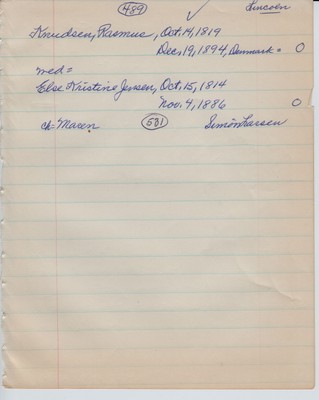 489 Lincoln
Knudsen, Rasmus, Oct. 14, 1819
Dec. 19, 1894, Denmark = O
wed =
Else Kristine Jensen, Oct. 15, 1814
Nov. 4, 1886 O
ch: Maren 531 Simon Larsen